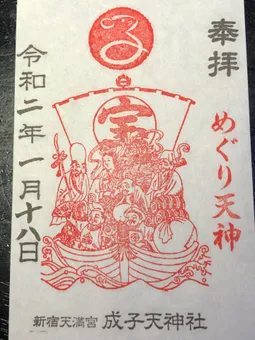 奉拝
めぐり天神
宝
令和二年一月十八日
新宿天満宮 成子天神社